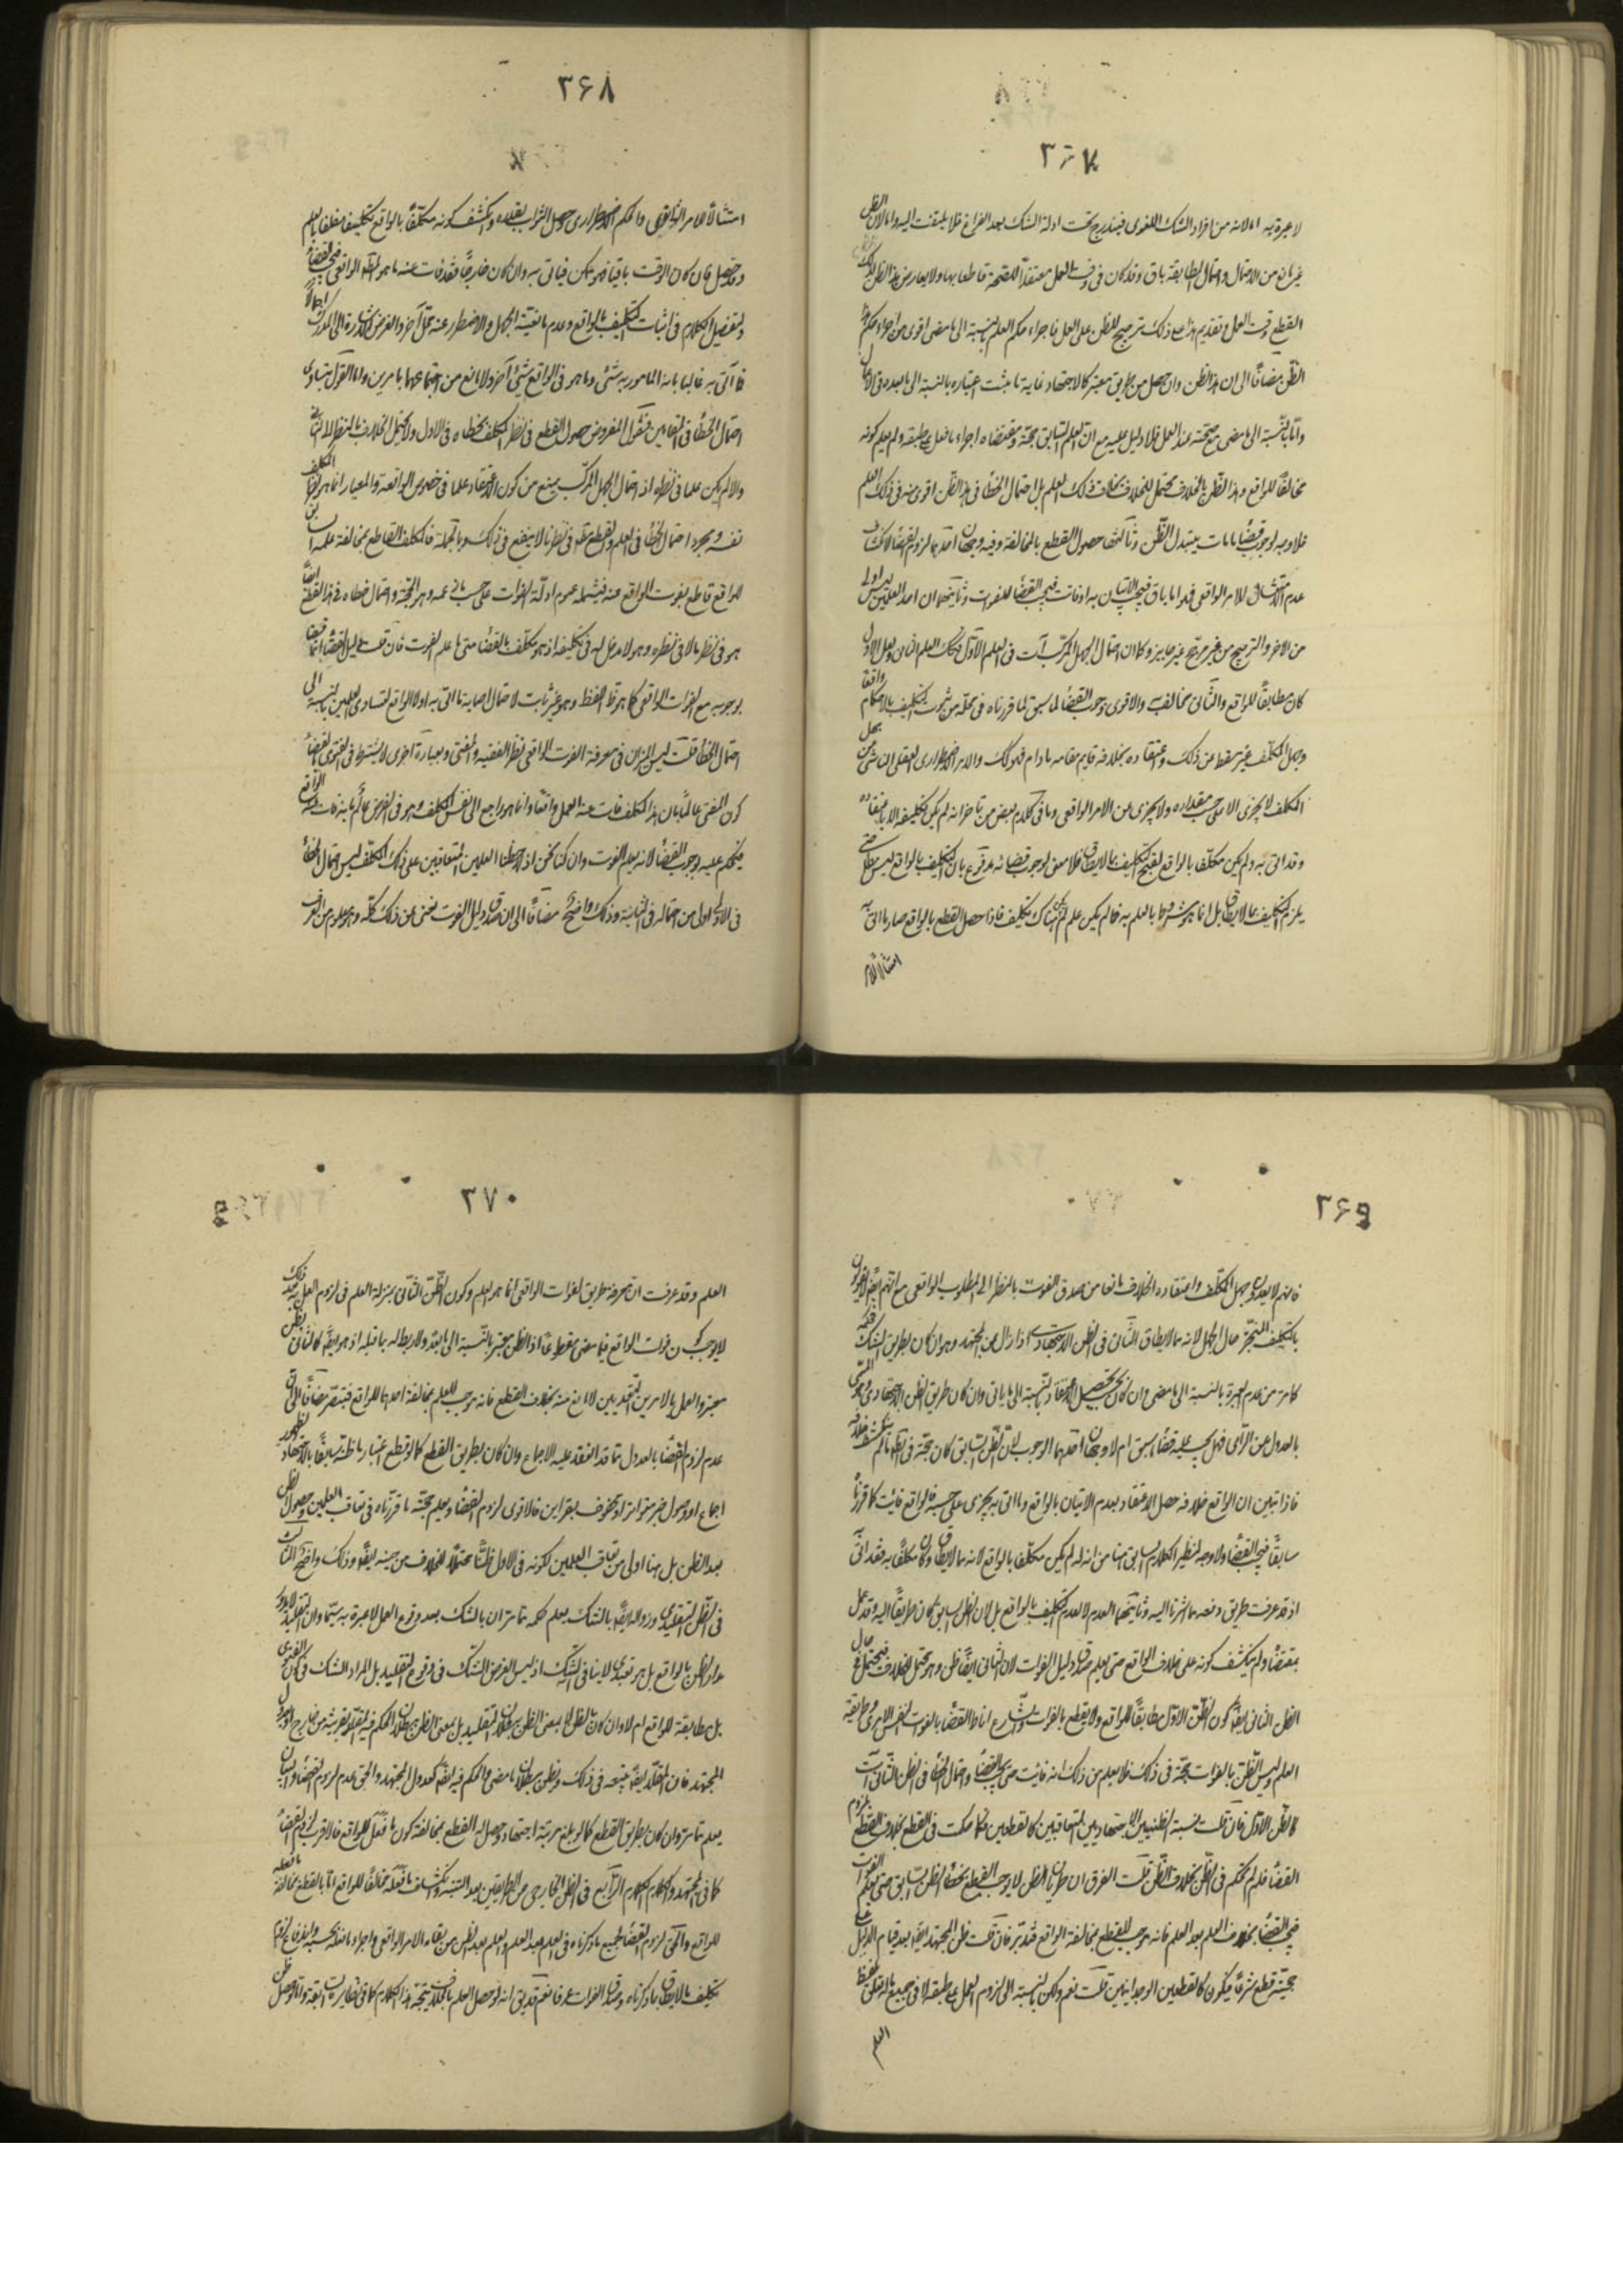 ٣٦٧
لا عبرة به اما لانه من افراد الشك اللغوى فيندرج تحت ادلة الشك بعد الفراغ فلا يلتفت اليه واما لان الظن
غير مانع من الاحتمال واحتمال المطابقة باق وقد كان فى وقت العمل معتقداً للصحة قاطعا بها ولا يعارض هذا الظن ذلك
القطع وقت العمل وتقديم هذا مع ذلك ترجيح للظن على العلم فاجراء حكم العلم بالنسبة الى ما مضى اقوى من اجراء حكم هذا
الظن مضافاً الى ان هذا الظن وان حصل من طريق معتبر كالاجتهاد غاية ما يثبت اعتباره بالنسبة الى ما بعده فى الاعمال
واما بالنسبة الى ما مضى مع صحته عند العمل فلا دليل عليه مع ان العلم السابق حجة ومقتضاه اجزاء ما فعل على طبقه ولم يعلم كونه
مخالفاً للواقع وهذا الظن بالخلاف محتمل للخلاف بخلاف ذلك العلم بل احتمال الخطأ فى هذا الظن اقوى منه فى ذلك العلم
فلا وجه لوجوب قضاء ما مات بتبدل الظن وثالثها حصول القطع بالمخالفة وفيه وجهان احدهما لزوم القضاء لانكشاف
عدم الامتثال للامر الواقعى فهو اما باق فيجب الاتيان به او فات فيجب القضاء للفوات وثانيهما ان احد العلمين ليس اولى
من الاخر والترجيح من غير مرجح غير جايز وكما ان احتمال الجهل المركب آت فى العلم الاول فكذلك العلم الثانى ولعل الاول
كان مطابقاً للواقع والثانى مخالف والاقوى وجوب القضاء لما سبق لما قررناه فى محله من ثبوت التكليف بالاحكام واقعاً
وجهل المكلف غير مسقط عن ذلك واعتقاده بخلافه قايم مقامه ما دام كذلك والامر الاضطرارى العقلى الناشى من جهل
المكلف لا يجزى الا على حسب مقداره ولا يجزى عن الامر الواقعى وما فى كلام بعض من تاخر انه لم يكن تكليفه الا باعتقاده
وقد اتى به ولم يكن مكلفا بالواقع لقبح التكليف بما لا يطاق فلا معنى لوجوب قضائه مدفوع بان التكليف بالواقع ليس مطلقا حتى
يلزم التكليف بما لا يطاق بل انما هو مشروط بالعلم به فما لم يكن علم لم يكن هناك تكليف فاذا حصل القطع بالواقع صار ما اتى به
امتثالا للامر
٣٦٨
امتثالاً للامر الواقعى والحكم الاضطرارى حصل الثواب بقلده وانكشف كونه مكلفاً بالواقع تكليفا معلقا بالعلم
وقد حصل فان كان الوقت باقيا فهو يمكن فياتى به وان كان خارجاً فقد فات عنه ما هو المطلوب الواقعى فيجب القضاء
ولتفصيل الكلام فى اثبات التكليف بالواقع وعدم مانعية الجهل والاضطرار عنه محل آخر والغرض الاشارة الى المدرك اجمالاً
فما آتى به غالبا بانه المامور به شئى وما هو فى الواقع شئى آخر ولا مانع من اجتماعهما بامرين واما القول بتساوى
احتمال الخطأ فى المقامين فنقول المفروض حصول القطع فى نظر المكلف بخطاه فى الاول ولا يحتمل الخلاف بالنظر الى الثانى
والا لم يكن علما فى نظره اذ احتمال الجهل المركب يمنع من كون الاعتقاد علما فى خصوص الواقعة والمعيار انما هو نظر المكلف
نفسه ومجرد احتمال الخطأ فى العلم والقطع منه فى نظرنا لا ينفع فى ذلك وبالجملة فالمكلف القاطع بمخالفة علمه السابق
للواقع قاطع بفوت الواقع عنه فيشمله عموم ادلة الفوات على حسب ما فى علمه وهو الحجة واحتمال خطاه فى هذا القطع ايضاً
هو فى نظرنا لا فى نظره وهو لا مدخل له فى تكليفه اذ هو مكلف بالقضاء متى ما علم الفوت فان قلت دليل القضاء انما قضى
بوجوبه مع الفوات الواقعى كما هو ظ اللفظ وهو غير ثابت لاحتمال اصابة ما اتى به اولا الواقع لتساوى العلمين بالنسبة الى
احتمال الخطأ قلت ليس الميزان فى معرفة الفوت الواقعى نظر الفقيه والمفتى وبعبارة اخرى لا يشترط فى الفتوى بالقضاء
كون المفتى عالماً بان هذا المكلف فات عنه العمل واقعاً وانما هو راجع الى نفس المكلف وهو فى الفرض عالم بانه فات عنه الواقع
فيحكم عليه بوجوب القضاء لانه يعلم الفوت وان كنا نحن اذا لاحظنا العلمين المتعاقبين على ذلك المكلف ليس احتمال الخطأ
فى الاولى اولى من احتماله فى الثانية وذلك واضح مضافاً الى ان صدق دليل الفوت يغنى عن ذلك كله وهو معلوم من العرف
٣٦٩
فانهم لا يعدون جهل المكلف واعتقاده الخلاف مانعا من صدق الفوت بالنظر الى المطلوب الواقعى مع انهم ايضاً لا يقولون
بالتكليف المنجز حال الجهل لانه مما لا يطاق الثانى فى الظن الاجتهادى اذا زال عن المجتهد وهو ان كان بطريق الشك فحكمه
كما مر من عدم العبرة بالنسبة الى ما مضى وان كان يجب تحصيل الاعتقاد بالنسبة الى ما ياتى وان كان طريق الظن الاجتهادى وهو المسمى
بالعدول عن الراى فهل يجب عليه قضاء ما سبق ام لا وجهان احدهما الوجوب لان الظن السابق كان حجة فى الظ ما لم ينكشف خلافه
فاذا تبين ان الواقع خلافه حصل الاعتقاد بعدم الاتيان بالواقع وما اتى به يجزى على حسبه فالواقع فائت كما قررناه
سابقاً فيجب القضاء ولا وجه لنظير الكلام السابق هنا من انه لم يكن مكلفا بالواقع لانه مما لا يطاق وكان مكلفاً به فقد اتى
اذ قد عرفت طريق دفعه مما اشرنا اليه وثانيهما العدم لا لعدم التكليف بالواقع بل لان الظن السابق كان طريقاً اليه وقد عمل
بمقتضاه ولم ينكشف كونه على خلاف الواقع حتى يعلم صدق دليل الفوات لان الثانى ايضاً ظن وهو محتمل للخلاف فيحتمل مع حال
الظن الثانى ايضاً كون الظن الاول مطابقاً للواقع ولا يقطع بالفوات والشارع اناط القضاء بالفوت النفس الامرى وطريقه
العلم وليس الظن بالفوات حجة فى ذلك فلا يعلم من ذلك انه فائت حتى يجب القضاء واحتمال الخطأ فى الظن الثانى آت
كالظن الاول فان قلت نسبة الظنيين الاجتهاديين المتعاقبين كالقطعين فكما حكمت فى القطع بخلاف القطع بلزوم
القضاء فلم لم تحكم فى الظن بخلاف الظن قلت الفرق ان طريان الظن لا يوجب القطع بخطأ الظن السابق حتى يعلم الفوات
فيجب القضاء بخلاف العلم بعد العلم فانه يوجب القطع بمخالفة الواقع فتدبر فان قلت ظن المجتهد ايضاً بعد قيام الدليل على
حجيته قطع شرعاً فيكون كالقطعين الوجدانيين قلت نعم ولكن بالنسبة الى لزوم العمل على طبقه لا فى جميع ما له تعلق بلفظ
العلم
٣٧٠
العلم وقد عرفت ان معرفة طريق الفوات الواقعى انما هو العلم وكون الظن الثانى بمنزلة العلم فى لزوم العمل به بعد ذلك
لا يوجب كون فوات الواقع فيما مضى مقطوعاً اذ الظن معتبر بالنسبة الى ما بعده ولا ربط له بما قبله اذ هو ايضاً كالثانى ظن
معتبر والعمل بالامرين التعبديين لا مانع منه بخلاف القطع فانه موجب للعلم بمخالفة احدهما للواقع فتبصر مضافاً الى ان
عدم لزوم القضاء بالعدول مما قد انعقد عليه الاجماع وان كان بطريق القطع كما لو قطع باعتبار ما ظنه سابقاً بالاجتهاد لظهور
اجماع او وصول خبر متواتر او محفوف بقراين فالاقوى لزوم القضاء ويعلم حجته ما قررناه فى تعاقب العلمين وحصول الظن
بعد الظن بل هنا اولى من تعاقب العلمين لكونه فى الاول ظناً محتملاً للخلاف من حينه ايضاً وذلك واضح الثالث
فى الظن التقليدى وزواله ايضاً بالشك يعلم حكمه مما مر ان بالشك بعد وقوع العمل لا عبرة به سيما وان التقليد لا يدور
مدار الظن بالواقع بل هو تعبدى لا ينافى الشك اذ ليس الغرض الشك فى وقوع التقليد بل المراد الشك فى كون الفتوى
بل مطابقة للواقع ام لا وان كان بالظن لا بمعنى الظن ببطلان التقليد بل بمعنى الظن ببطلان الحكم فيه لمقلده لقرينة من خارج او عدول
المجتهد فان المقلد ايضاً يتبعه فى ذلك ويظن ببطلان ما مضى والحكم فيه ايضاً كعدول المجتهد والحق عدم لزوم القضاء والبيان
يعلم مما مر وان كان بطريق القطع كما لو بلغ مرتبة اجتهاد وحصل له القطع بمخالفة كون ما فعل للواقع فالاقرب لزوم القضاء
كما فى المجتهد والكلام الكلام الرابع فى الظن الخارجى عن الطريقين بعد التنبه وانكشاف ما فعله مخالفاً للواقع اما بالقطع بمخالفة ما فعله
للواقع والحق لزوم القضاء لجميع ما ذكرناه فى العلم بعد العلم والعلم بعد الظن من بقاء الامر الواقعى واجزاء ما فعله بحسبه واندفاع لزوم
تكليف ما لا يطاق بما ذكرناه وصدق الفوات عرفا نعم قد يق انه لو حصل العلم بالخلاف يتجه هذا الكلام كما فى نظايره السابقة واما لو حصل ظن